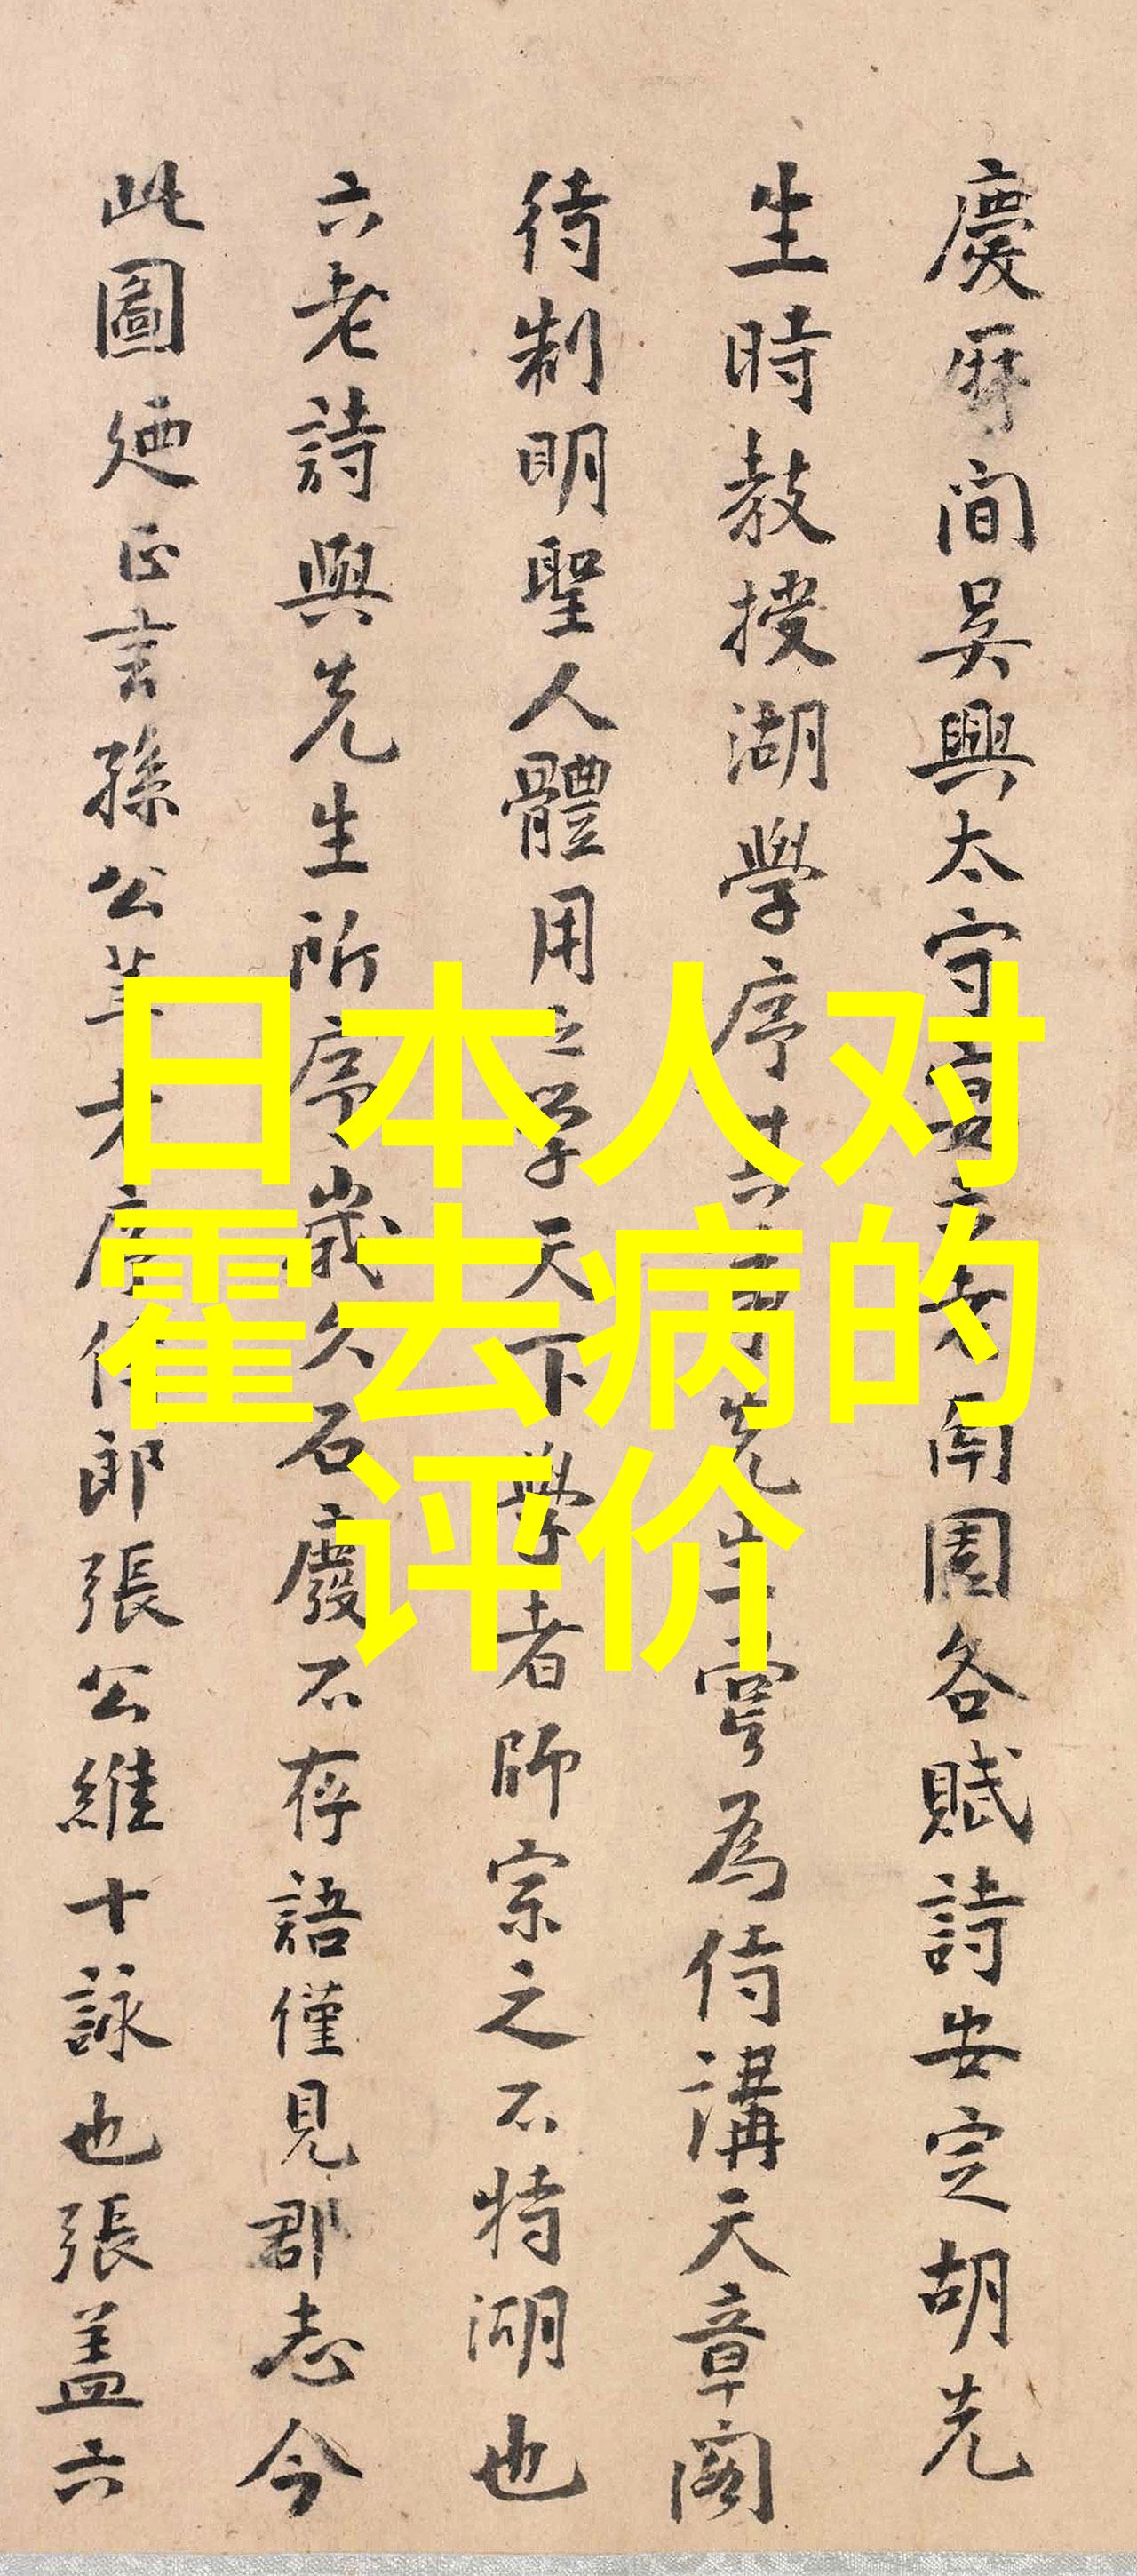 日本人对
霍去病的
评价
慶厤間吳興太守宴六老南園各賦詩安定胡先
生時教授湖學序其事先生嘗為侍講天章閣
待制明聖人體用之學天下學者師宗之不特湖也
六老詩與先生所序歲久石廢不存語僅見郡志今
此圖廼正言孫公莘老序侍郎張公維十詠也張盖六